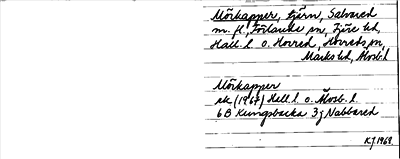 Mörkapper, tjärn, Salvared
m. fl., Förlanda sn, Fjäre hd,
Hall. l. o. Horred, Horreds sn,
Marks hd, Älvsb. l
Mörkapper
ek. (1967) Hall l. o. Älvsb. l.
6B Kungsbacka 3j Nabbared
KJ 1969